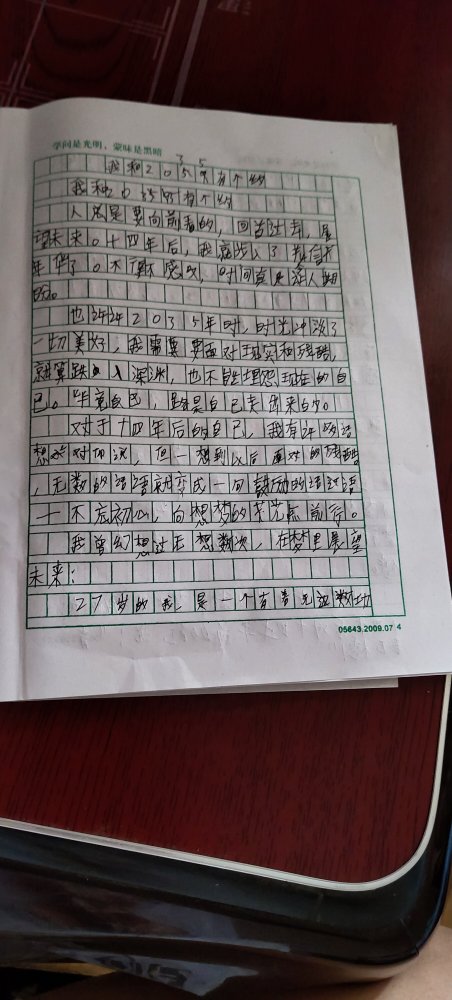 学问是光明，蒙昧是黑暗
3 5
我和2057有个约
我和2035有个约
人总是要向前看的，回首过去，展
望未来。十四年后，我意步入了
年华了。不得不感叹，时间真是
的。
也许2035年时，时光冲淡了
一切美好，我需要要面对现实和残酷，
就算跌入深渊，也不能埋怨现在的自
己。毕竟自己，路是自己走出来的。
对于十四年后的自己，我有许多话
想对你说，但一想到以后面对的残酷
，无数的话语就变成一句鼓励的话语
一不底初心，向想梦的光点前行。
我曾幻想过无想数次，在梦里展望
未来：
27岁的我，是一个有着无边
05643.2009.07 4